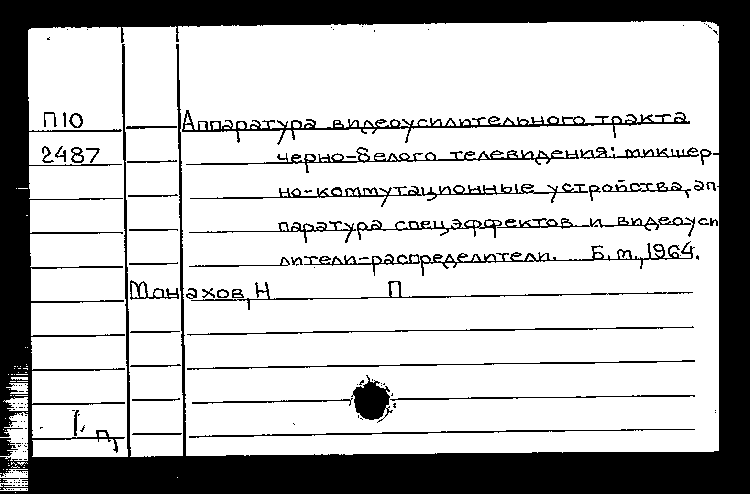 П10 Аппаратура видеоусилительного тракта
2487 черно-белого телевидения: микшер-
но-коммутационные устройства, ап-
паратура спецэффектов и видеоуси
лители-распределители. Б.м., 1964.
Монахов, Н П